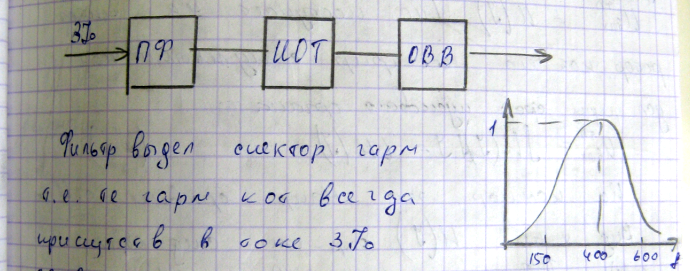 3I0
ПФ
ИОТ
ОВВ
Фильтр выдел спектор гарм
т.е. те гарм кот всегда
присутств в токе 3I0
1
150 400 600 f